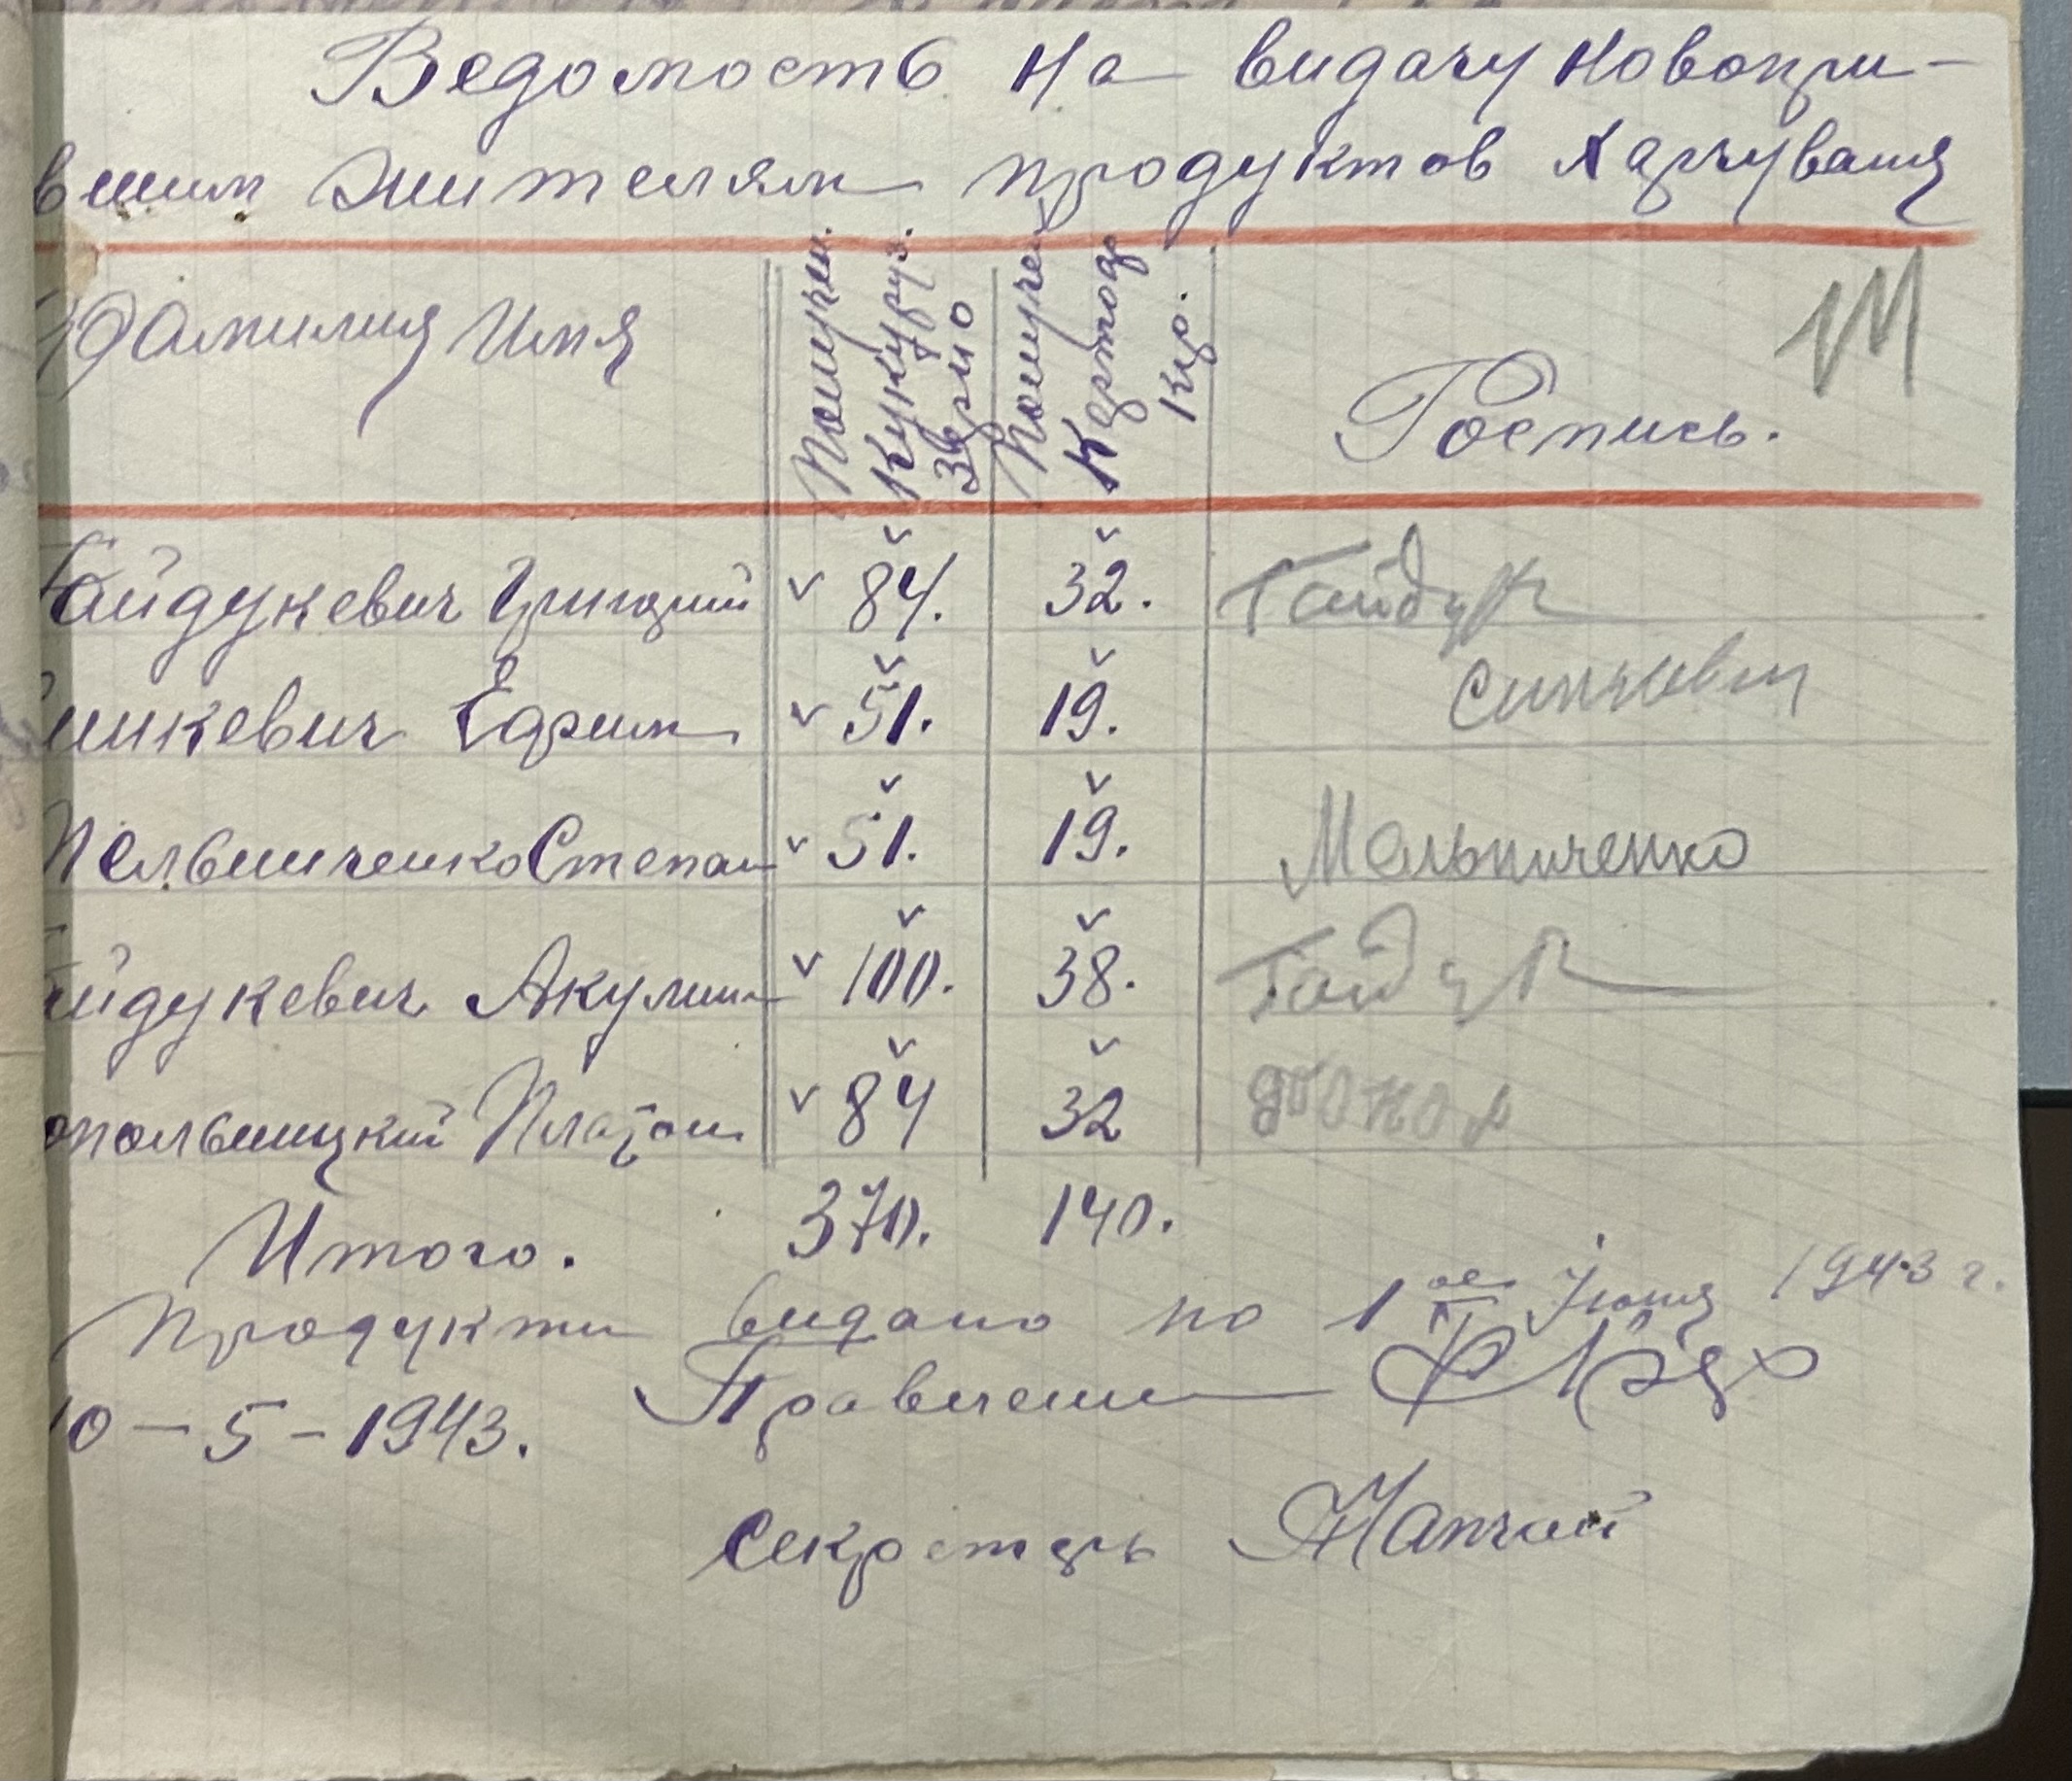 Ведомость на видачу новопри-
вшим жителям продуктов харчування
Фамилия Имя Получен. Кукуруз. Зерно Получен Картоф Кгр. Роспись.
Гайдукевич Григорий 84. 32. Гайдук
Синкевич Ефим 51. 19. Синкевич
Мельниченко Степан 51. 19. Мельниченко
Гайдукевич Акулина 100. 38. Гайдук
опольницкий Платон 84 32
Итого. 370. 140.
Продукти видано по 1ое Июня 1943 г.
10-5-1943. Правление
Секретарь